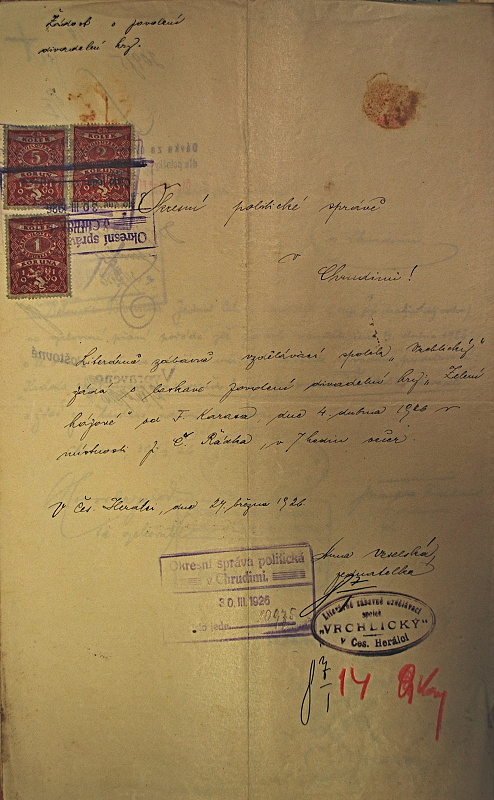 Žádost o povolení
divadelní hry.
KOLEK
5
KOLEK
2
KOLEK
1
KORUNA
30 III 1926
Okresní správa
v Chrudimi
Okresní politické správě
v
Chrudimi!
Literárně zábavně vzdělávací spolek "Vrchlický"
žádá o laskavé povolení divadelní hry "Zelení
hájové" od F. Karasa, dne 4. dubna 1926 v
místnosti p. Č. Řádka, v 7 hodin večer.
V Čes. Herálci, dne 27. března 1926
Anna Veselská
jednatelka
Okresní správa politická
v Chrudimi.
30. III. 1926
Literárně zábavně vzdělávací
spolek
"VRCHLICKÝ"
v Čes. Herálci
14